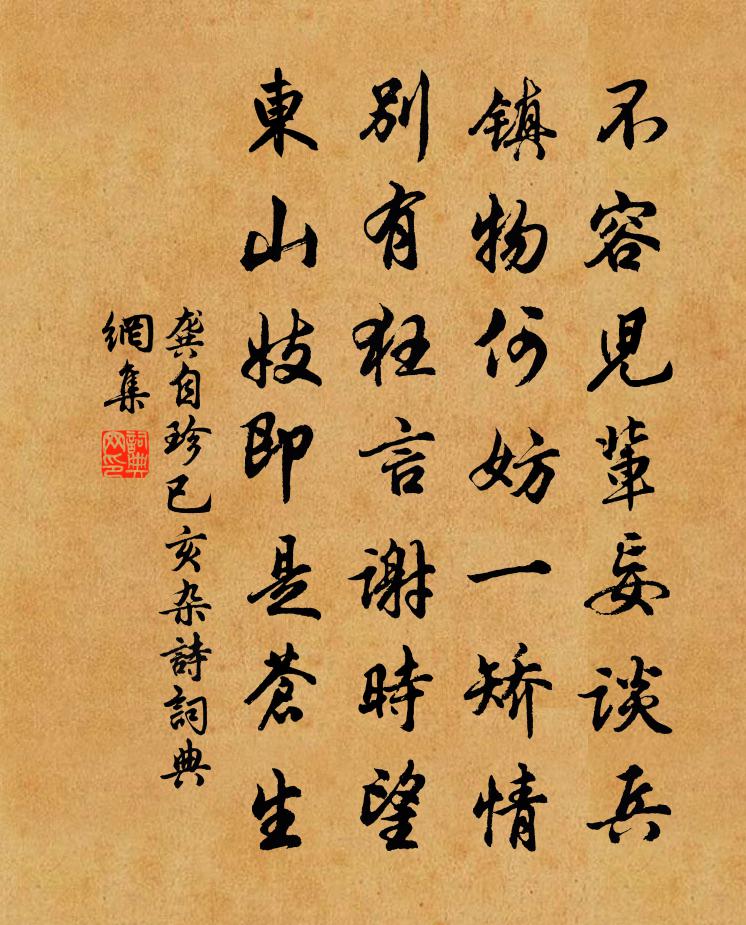 不容児輩妄談兵
镇物何妨一矫情
别有狂言謝時望
東山妓即是蒼生
龔自珍己亥杂詩詞典
網集
詞典
网印